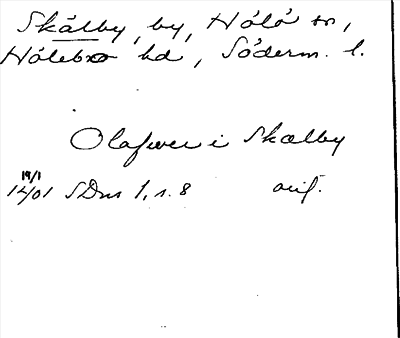 Skälby, by, Hölö sn,
Hölebo hd, Söderm. l.
Olafwer i Skælby
19/1
1401 SDns 1, s. 8 orif.